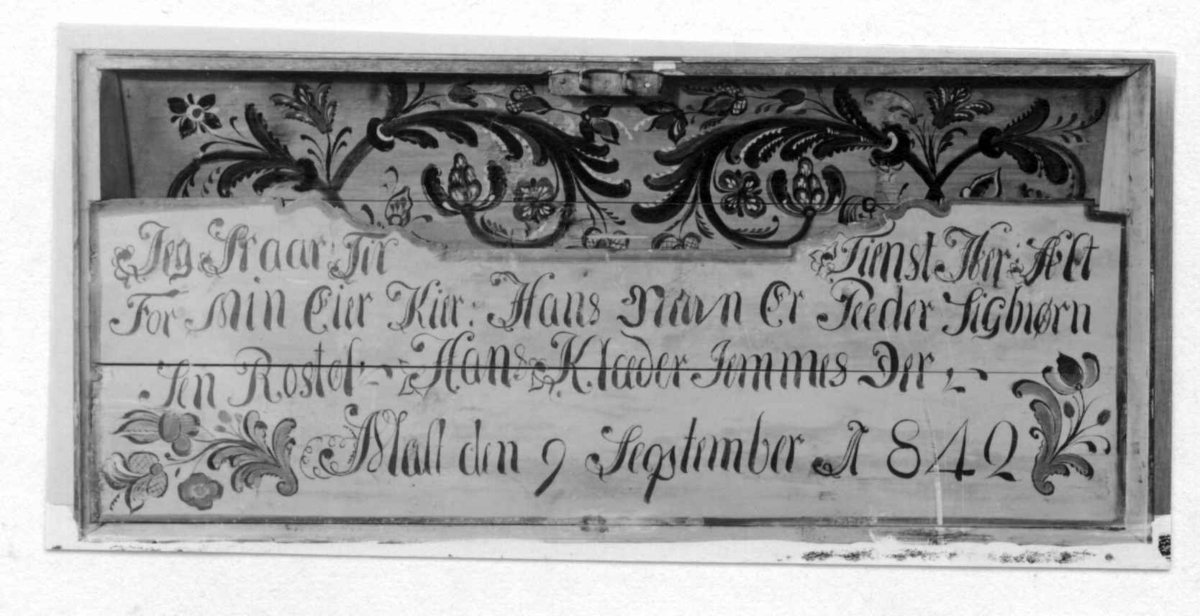 Jeg Staar Til Tienst Her: Alt
For Min Eier Kier: Hans Navn Er Peeder Sigbiørn
Sen Rostøl Hans Klæder Jemmes Der
Mall den 9 September A 1842